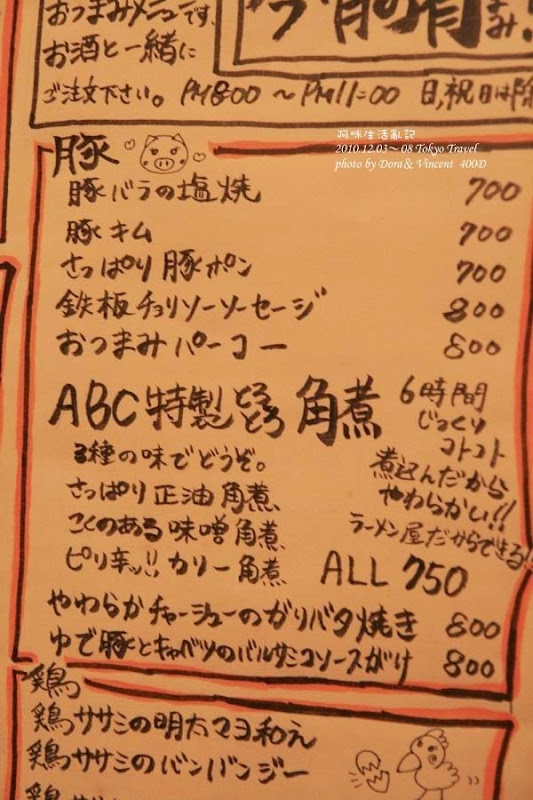 おつまみメニューです。
お酒と一緒に
ご注文下さい。 PM8:00 〜 PM11:00 日,祝日は除
阿咪生活亂記
2010.12.03~ 08 Tokyo Travel
photo by Dora& Vincent 400D
豚
豚バラの塩焼 700
豚キム 700
さっぱり豚ポン 700
鉄板チョリソーソーセージ 800
おつまみパーコー 800
ABC特製とろとろ角煮
6時間
じっくり
コトコト
煮込んだから
やわらかい!!
ラーメン屋だからできる!!
3種の味でどうぞ。
さっぱり正油角煮
こくのある味噌角煮
ピリ辛ッ!!カリー角煮
ALL 750
やわらかチャーシューのガリバタ焼き 800
ゆで豚とキャベツのバルサミコソースがけ 800
鶏
鶏ササミの明太マヨ和え
鶏ササミのバンバンジー